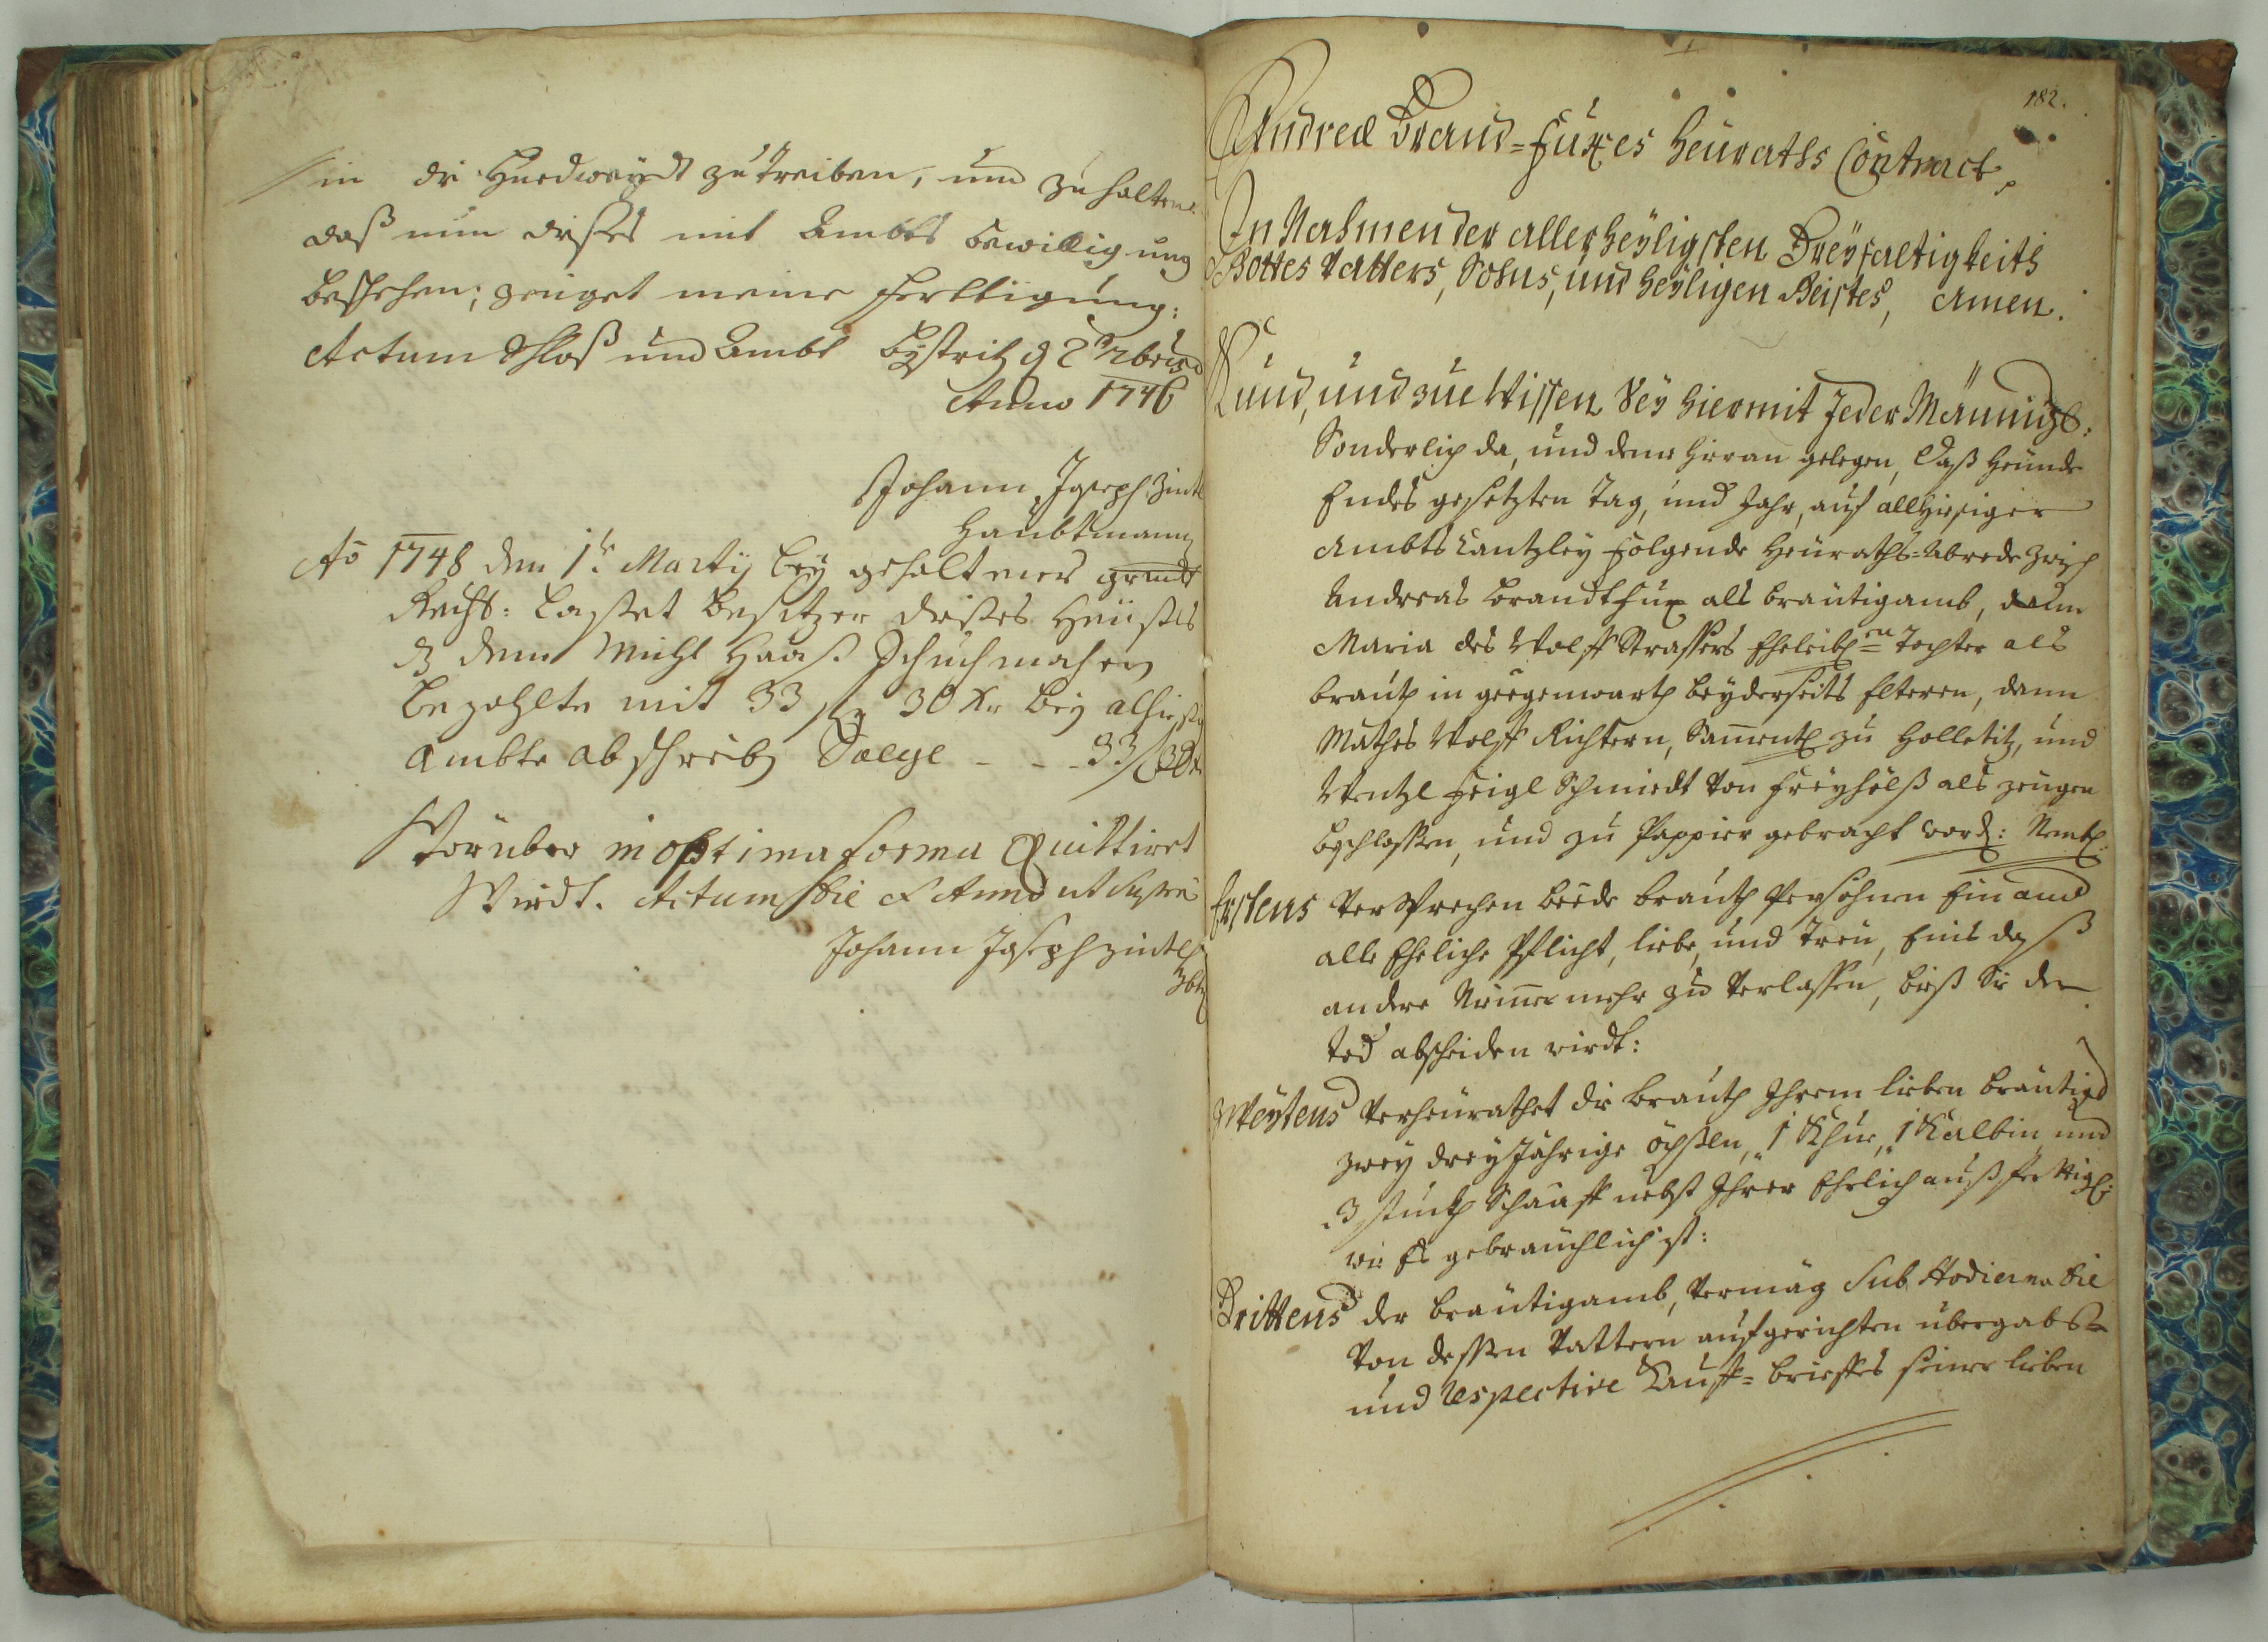 in die Huedweydt zu treiben, und zu halten.
daß nun dißes mit Ambts bewilligung
beschehen; zeuget meine Ferttigung:
Actum Schloß und Ambt Bystritz d 2t 9bris
Anno 1746
Johann Joseph Zintl
Haubtmann
Ao 1748 den 1t Martij bey gehaltenes grundt
Recht: lasset besitzer dißes Heüßls
dem Michl Haaß Schuchmacher
bezahlte mit 33 ß 30 Xr bey alhießig
Ambte abschreiben Salge - - - 33 / 30 Xr
Worüber in optima forma Quittiret
Wirdt. Actum Die & Anno ut supra
Johann Joseph Zintl
Hbtm
182.
Andreæ Brand=Fuxes Heuraths Contract,
In Nahmen der allerheyligsten Dreyfaltigkeith
Gottes Vatters, Sohns, und heyligen Geistes, Amen.
Kund, und zue Wissen Sey hiermit Jeder Männigl:
Sonderlich da, und deme hieran gelegen, Daß heünde
Endes gesetzten Tag, und Jahr, auf allhiesiger
Ambts Cantzley folgende Heuraths-Abrede zwisch
Andreas Brandtfux als bräutigamb, dann
Maria des Wolff Strassers Eheleibl:en Tochter als
brauth in geegenwarth beyderseits Elteren, dann
Mathes Wolff Richtern, Sammentl zu Holletitz, und
Wentzl Feigl Schmiedt von Freyhölß als zeugen
beschlossen, und zu Pappier gebracht word: Nembl:
Erstens Versprechen beede brauth Persohnen Einand
alle Eheliche Pflicht, liebe, und Treu, Eins daß
andere Nimmermehr zu verlassen, bieß Sie der
Tod abscheiden wirdt:
Zweytens Verheurathet die brauth Ihrem lieben bräutig
zwey dreyJährige öchßlen, 1 Khue, 1 Kalbin und
3 stuckh Schaaff nebst Ihrer Ehrlich außfertig:
wie Es gebräuchlich ist:
Drittens der bräutigamb, vermäg Sub Hodierna Die
von dessen Vattern aufgerichten übergabs-
und respective Kauff= brieffes seiner lieben